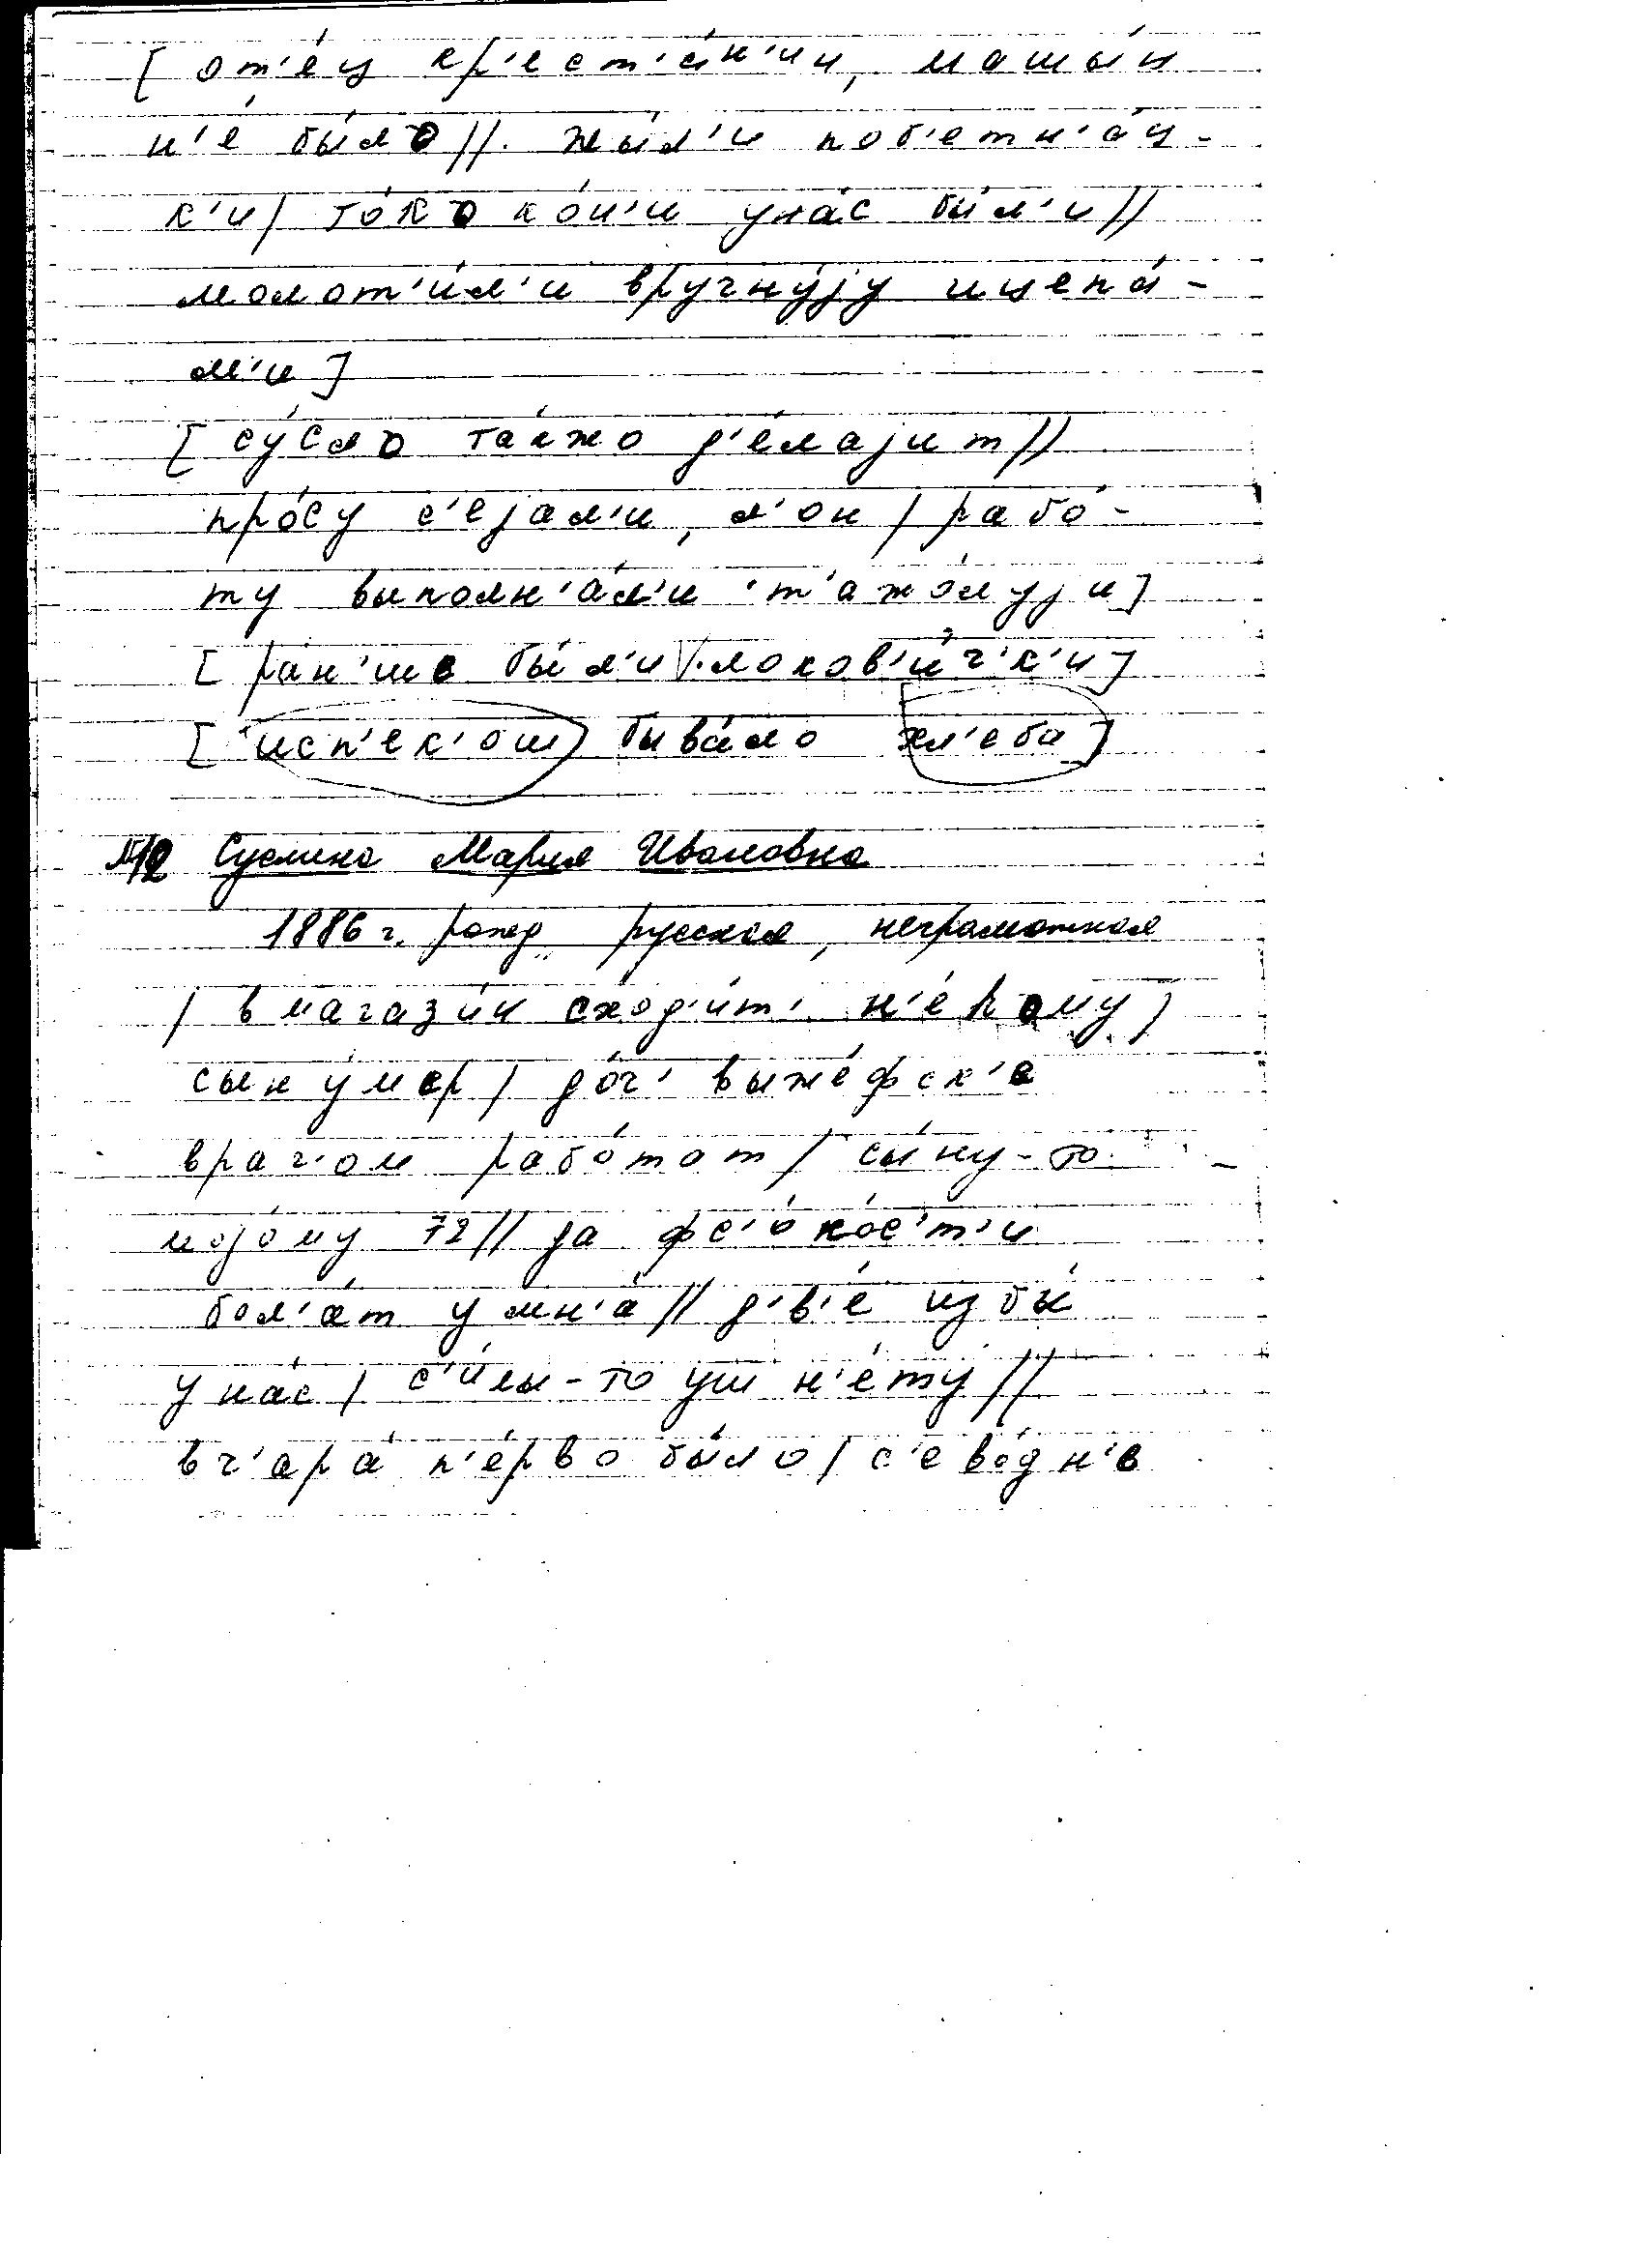 [ от'е́ц кр'ест'а́н'ин, машы́н
н'е́ бы́ло //. жы́л'и поб'етн'а́ц-
к'и / то́ко ко́н'и уна́с бы́л'и //
молот'и́л'и вручну́jу ицепа́-
м'и ]
[ су́сло та́кжо д'е́лаjит //
про́су с'е́jал'и, л'он / рабо́-
ту выполн'а́л'и т'ажо́луjу ]
[ ра́н'ше бы́л'и моков'и́ч'к'и ]
[ исп'ек'о́ш быва́ло хл'е́ба ]
№12 Суслина Мария Ивановна
1886 г. рожд., русская, неграмотная
/ в магази́н сход'и́т' н'е́кому /
сын у́мер / доч' выже́фск'е
врач'о́м рабо́тат / сы́ну-то
моjо́му 72 // да фс'о ко́с'т'и
бол'а́т у мн'а́ // д'в'е́ избы́
у на́с / с'и́лы-то уш н'е́ту //
вч'ара́ п'е́рво бы́ло / с'ево́дн'е